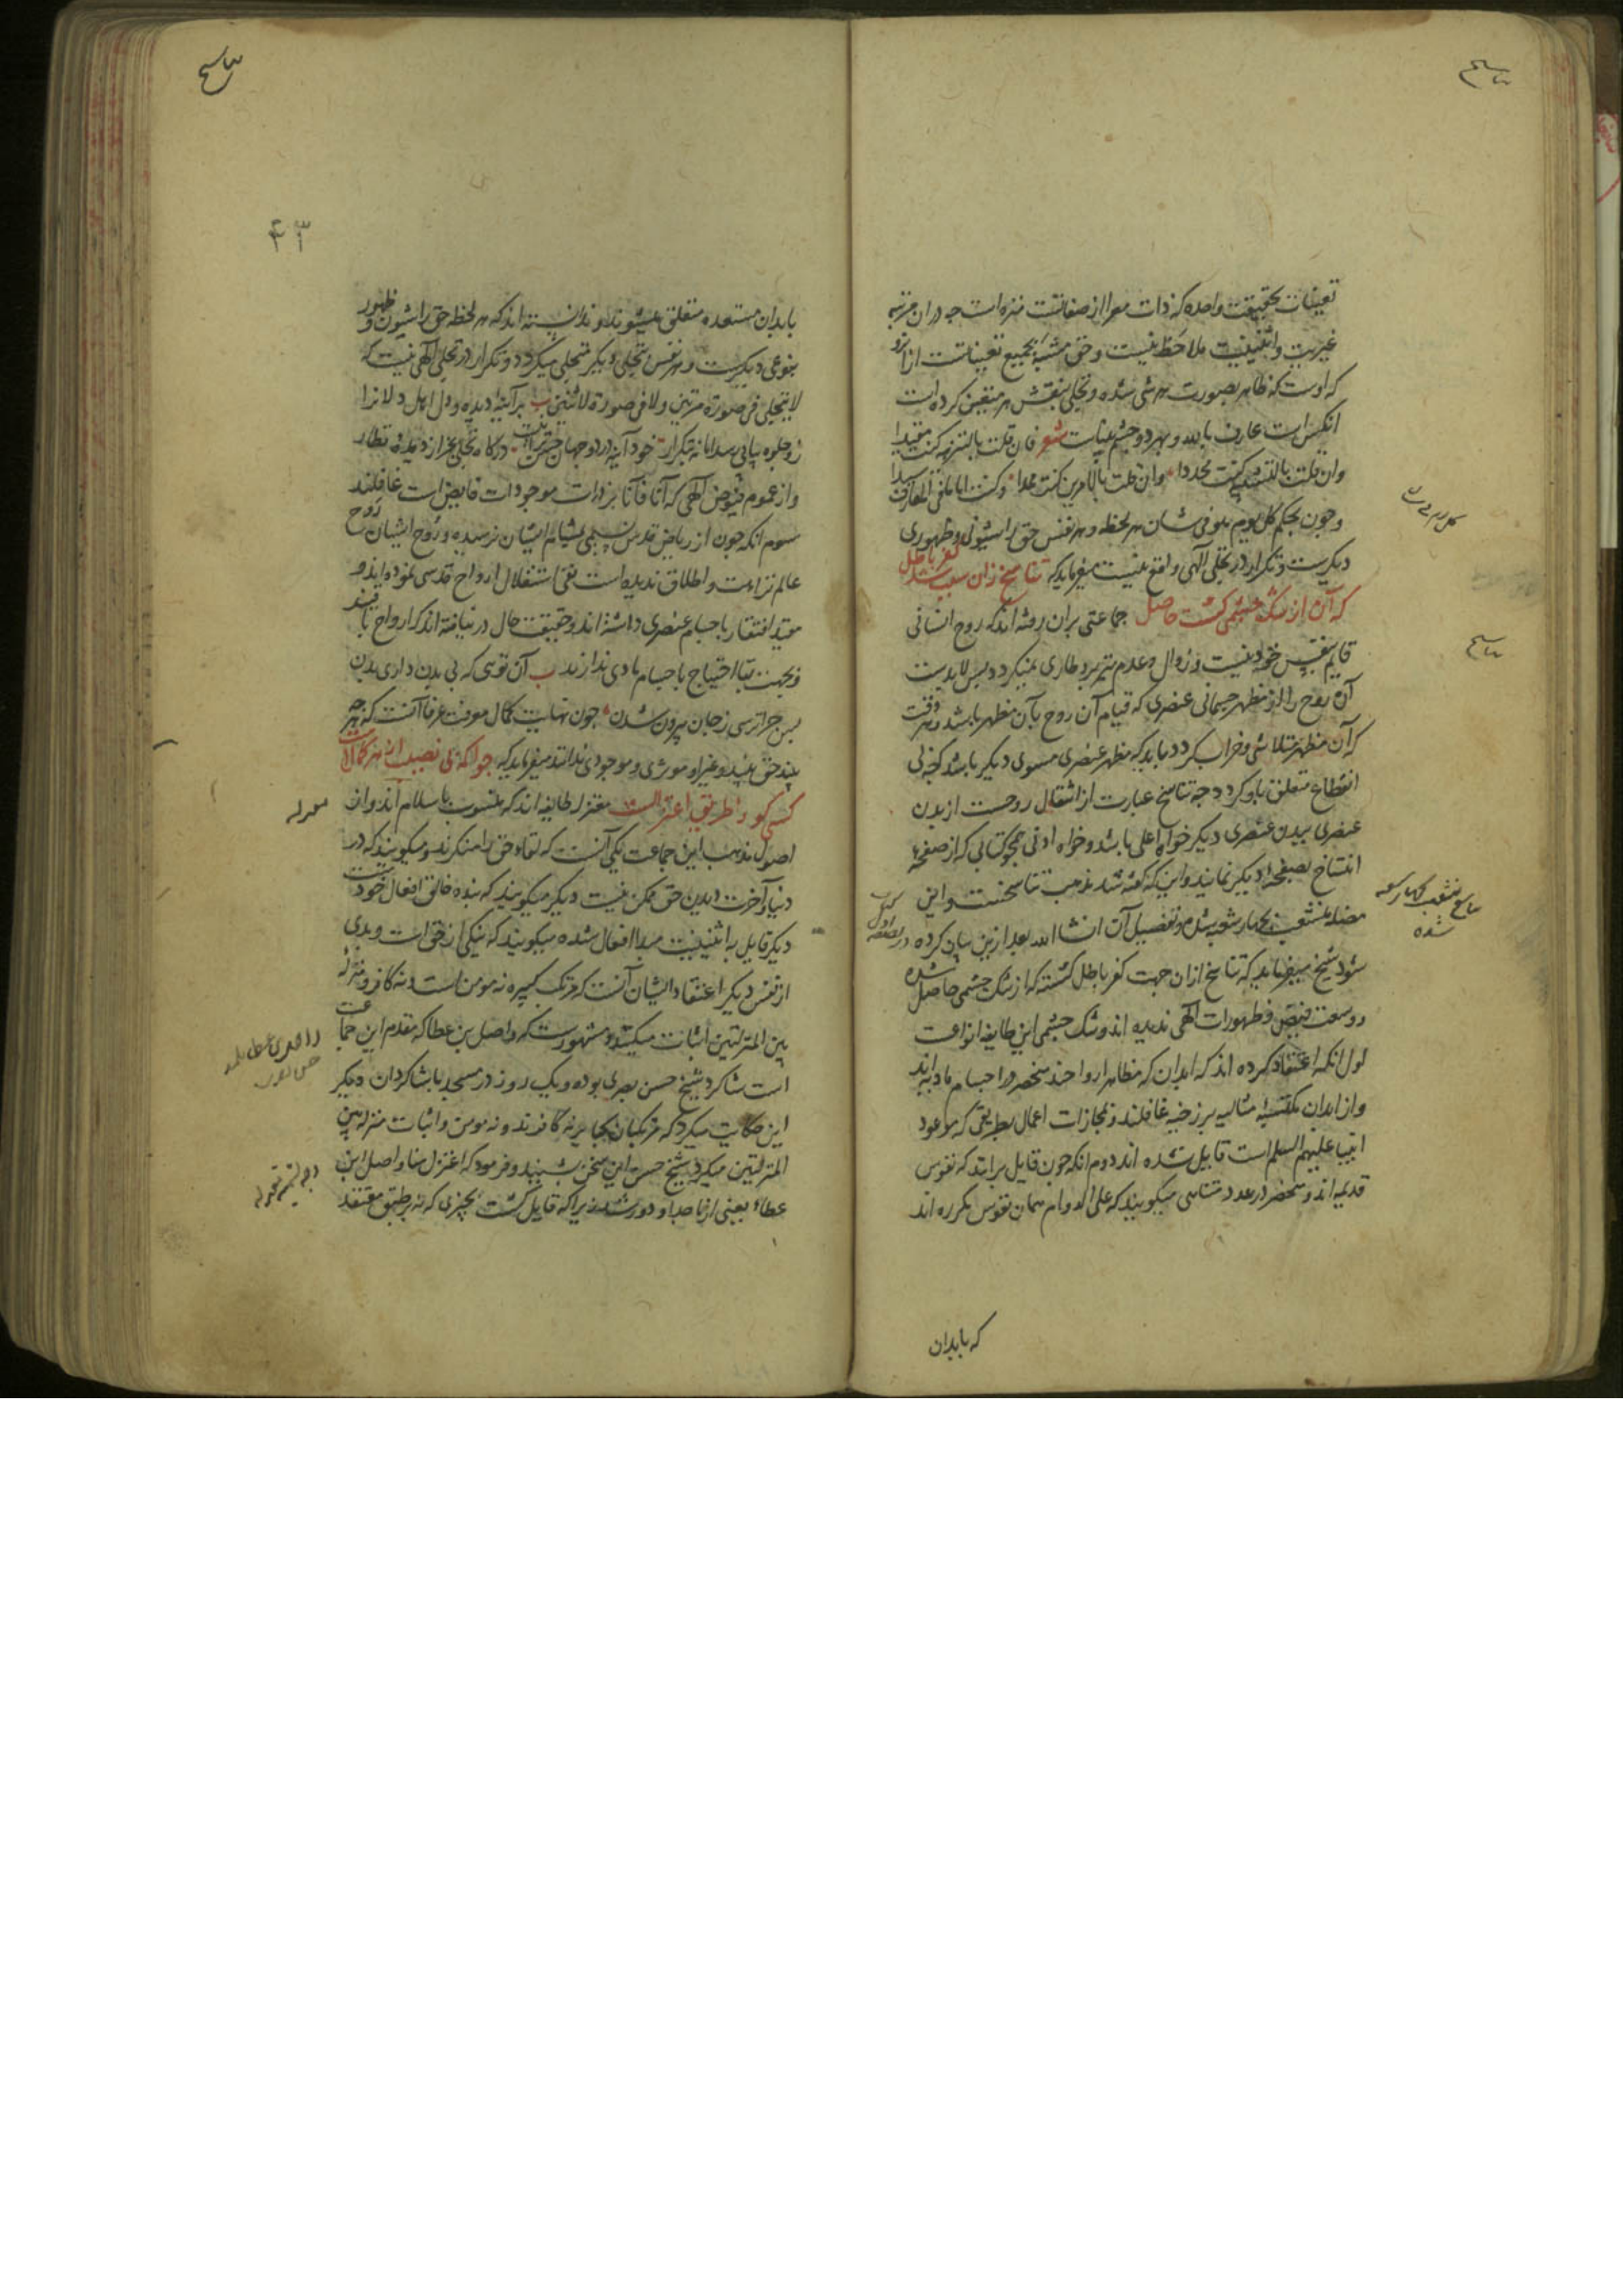 تناسخ
تعینات بحقیقت واحده که ذات معرا از صفاتست منزه است چه در ان مرتبه
غیریت و اثنینیت ملاحظ نیست و حق مشبه بجمیع تعیناتست ازانرو
که اوست که ظاهر بصورت هر شی شده و تجلی بنقش هر متعین کرده است
انکس است عارف بالله و بهر دو چشم بیناست شعر فان قلت بالتنزیه کنت مقیدا
وان قلت بالتشبیه کنت محددا وان قلت بالامرین کنت مسددا وکنت اماما فی المعارف سیدا
و چون بحکم کل یوم هو فی شان هر لحظه و هر نفس حق را شیونی و ظهوری
دیگرست و تکرار در تجلی الهی واقع نیست میفرماید که تناسخ زان سبب شد کفر و باطل
که آن از تنگ چشمی گشت حاصل جماعتی بران رفته اند که روح انسانی
قایم بنفس خود نیست و زوال و عدم نیز برو طاری نمیگردد پس لابدست
آن روح را از مظهر جسمانی عنصری که قیام آن روح بآن مظهر باشد و هر وقت
که آن مظهر متلاشی و خراب گردد باید که مظهر عنصری مسوی دیگر باشد که بی
انقطاع متعلق باو گردد چه تناسخ عبارت از انتقال روحست از بدن
عنصری ببدن عنصری دیگر خواه اعلی باشد و خواه ادنی همچو کتابی که از صفحهٔ
انتساخ بصفحهٔ دیگر نمایند و این که گفته شد مذهب تناسخست و این
منشعب بچهار شعبه شده و تفصیل آن انشا الله بعد ازین بیان کرده
شود شیخ میفرماید که تناسخ ازان جهت کفر و باطل گشته که از تنگ چشمی حاصل شده
و وسعت فیض و ظهورات الهی ندیده اند و تنگ چشمی این طایفه انواعست
اول انکه اعتقاد کرده اند که ابدان که مظاهر ارواحند منحصر در اجسام مادیه اند
و از ابدان مکتسبه مثالیه برزخیه غافلند و مجازات اعمال بطریقی که موعود
انبیا علیهم السلام است قایل نشده اند دوم انکه چون قایل برانند که نفوس
قدیمه اند و منحصر در عدد متناهی میگویند که علی الدوام همان نفوس مکرره اند
که بابدان
تناسخ
تناسخ منشعب بچهار شعبه
شده
تناسخ
۴۳
بابدان مستعده متعلق میشوند و ندانسته اند که هر لحظه حق را شیون و ظهور
بنوعی دیگرست و هر نفس بتجلی دیگر متجلی میگردد و تکرار در تجلی الهی نیست که
لا یتجلی فی صورة مرتین ولا فی صورة لاثنین بیت بر آینه دیده و دل اهل دلانرا
زو جلوه پیاپی رسد اما نه بتکرار خود آینه در دو جهان چیست درگاه تجلی بجز از دیده نظار
و از عموم فیوض الهی که آنا فآنا بر ذرات موجودات فایض است غافلند
سوم انکه چون از ریاض قدس نسیمی بمشام ایشان نرسیده و روح ایشان روح
عالم نزاهت و اطلاق ندیده است نفی استقلال ارواح قدسی نموده اند و
مقید افتقار باجسام عنصری داشته اند و حقیقت حال در نیافته اند که ارواح باقیند
و بجهت بقا احتیاج باجسام مادی ندارند ب آن توی که بی بدن داری بدن
پس چرا ترسی ز جان بیرون شدن چون نهایت کمال معرفت عرفا آنست که هر چه
بیند حق بیند و غیر او موثری و موجودی نداند میفرماید که چو اکمه بی نصیب از هر کمالست
کسی کو را طریق اعتزالست معتزله طایفه اند که منسوب باسلام اند و از
اصول مذهب این جماعت یکی آنست که لقاء حق را منکرند و میگویند که در
دنیا و آخرت دیدن حق ممکن نیست و دیگر میگویند که بنده خالق افعال خودست
دیگر قایل به اثنینیت مبدا افعال شده میگویند که نیکی از حق است و بدی
از نفس دیگر اعتقاد ایشان آنست که مرتکب کبیره نه مومن است و نه کافر و منزلة
بین المنزلتین اثبات میکنند و مشهورست که واصل بن عطا که مقدم این جماعت
است شاگرد شیخ حسن بصری بوده و یک روز در مسجد با شاگردان دیگر
این حکایت میکرد که مرتکبان کبایر نه کافرند و نه مومن و اثبات منزلة بین
المنزلتین میکرد شیخ حسن این سخن بشنید و فرمود که اعتزل عنا واصل ابن
عطاء یعنی از ما جدا و دور شد زیرا که قایل گشت بچیزی که نه بر طبق معتقد
معتزله
وجه تسمیه معتزله